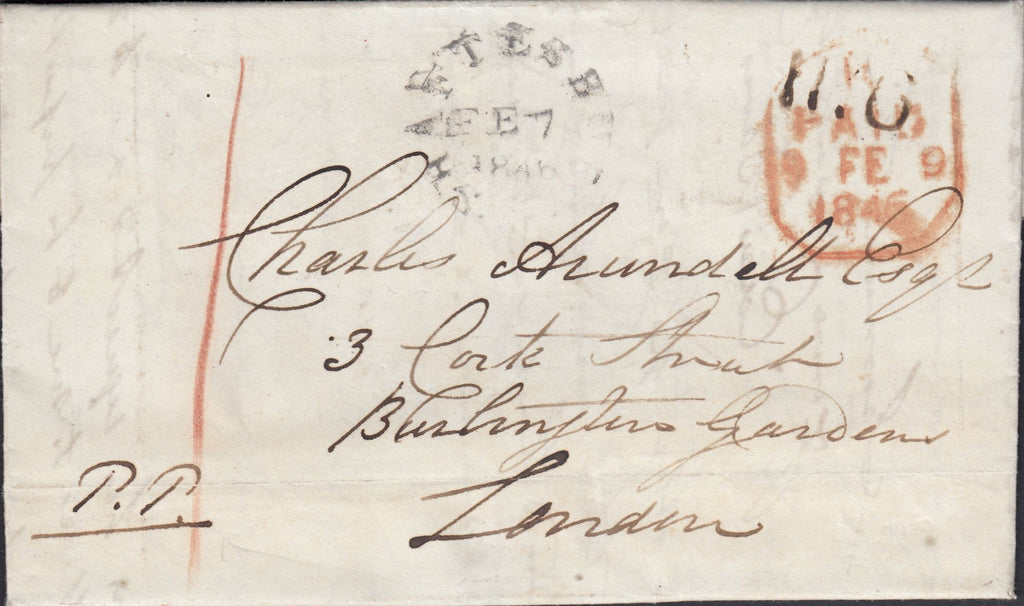 FE 7
1846
H.O
PAID
9 FE 9
1846
Charles Arundell Esqr
3 Cork Street
Burlington Gardens
London
P.P.